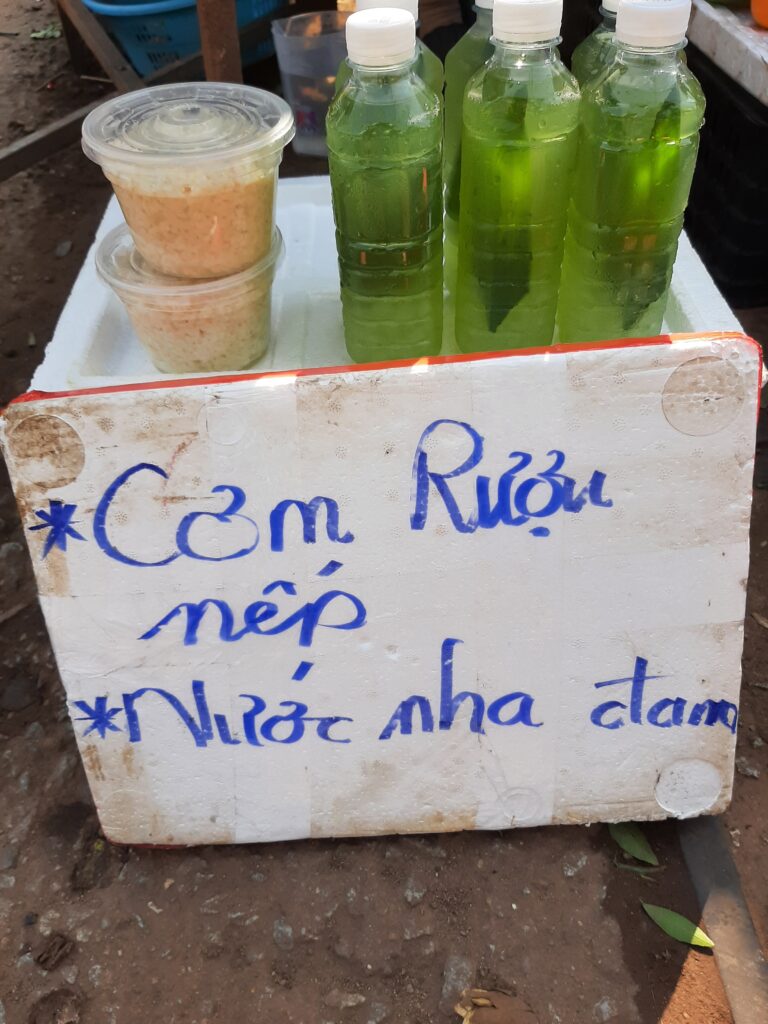 * Cơm Rượu
nếp
* Nước nha đam